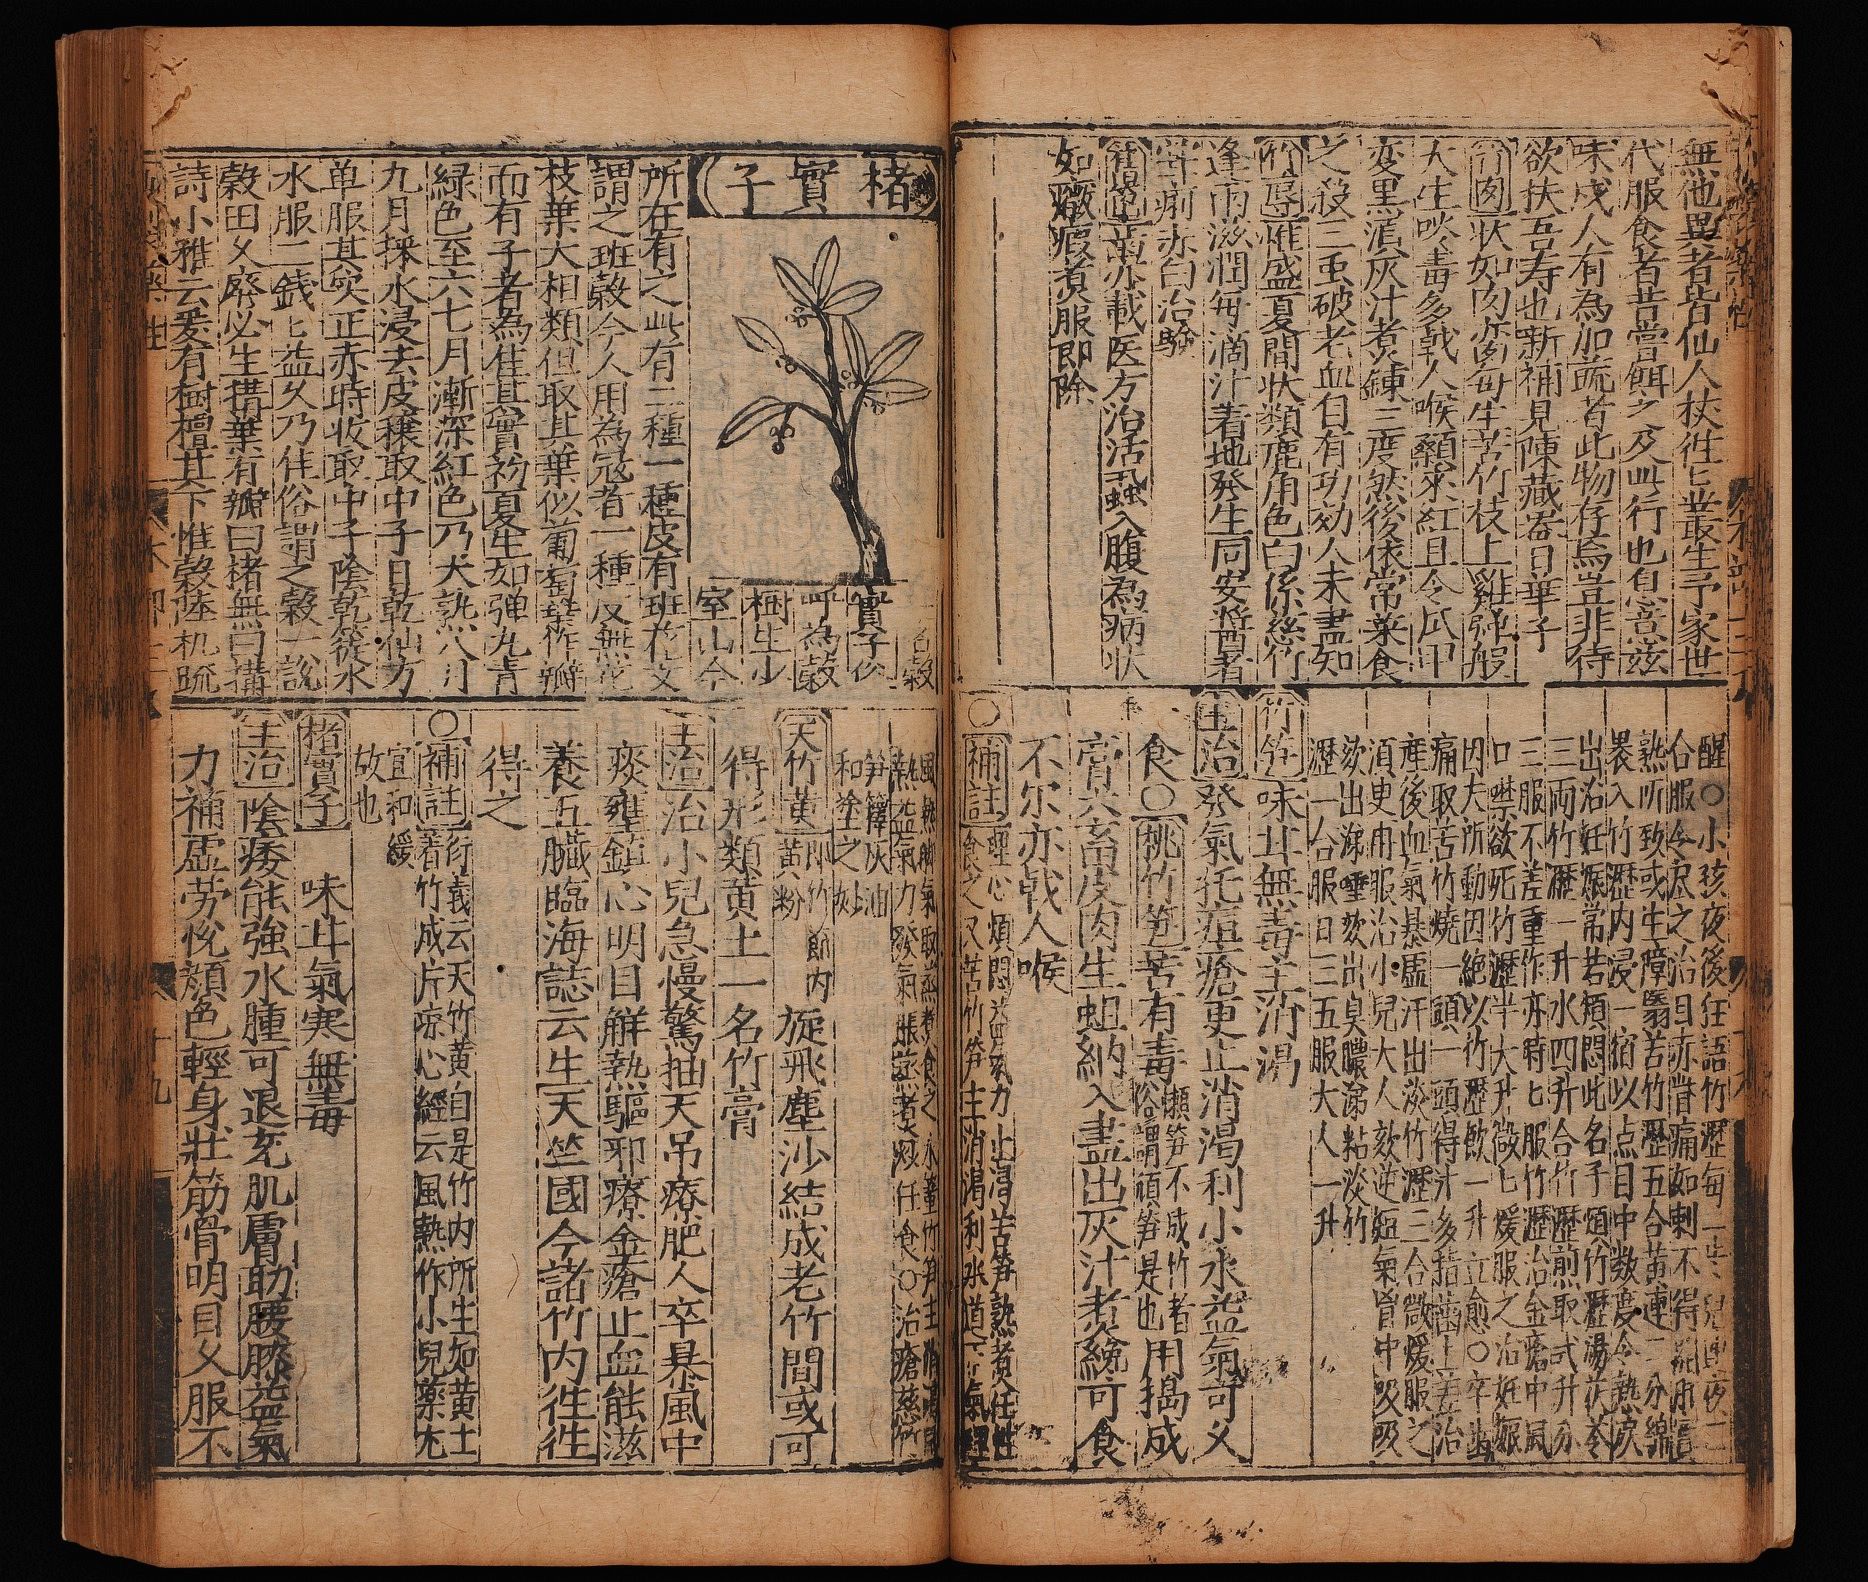 無他異者皆仙人杖徃匕叢生予家世
代服食者昔嘗餌之及此行也息意茲
味戍人有為加蔬者此物存焉豈非待
欲扶吾寿也新補見陳藏器日華子
竹肉狀如肉臠毎生苦竹枝上雞弹般
大生啖毒多戟人喉顙來紅且令爪甲
変黒濵灰汁煮鍊三度然後依常菜食
之殺三虫破老血自有功効人未盡知
竹蓐惟盛夏間状類鹿角色白係絲竹
逢雨滋潤毎滴汁着地發生同安醬者
甞痢赤白治驗
籜笆蕾亦載医方治活蟲入腹為病状
如癥瘕煮服即除
醒〇小孩夜後狂語竹瀝毎一
合服令尽之治目赤眥痛如刺不得開
熟所致或生障翳苦竹瀝五合黄連二分綿
裹入竹瀝内浸一宿以点目中数度令熱淚
出治妊娠常苦煩悶此名子煩竹瀝湯茯苓
三両竹瀝一升水四升合竹瀝煎取弍升分
三服不差重作亦時匕服竹瀝治金瘡中風
口噤欲死竹瀝半大升微匕煖服之治妊娠
因夫所動困絶以竹瀝飲一升立愈〇卒齒
痛取苦竹燒一頭一頭得汁多揩齒上差治
産後血氣暴虚汗出淡竹瀝三合微煖服之
湏臾再服治小兒大人欬逆短氣胷中吸吸
欬出涕唾欬出臭膿涕粘淡竹
瀝一合服日三五服大人一升
竹笋味甘無毒主消渴
主治發氣托痘瘡更止消渴利小水益氣可久
食〇桃竹笋苦有毒懶笋不成竹者俗謂頑笋是也用搗成
膏六畜皮肉生蛆納入盡出灰汁煮繞可食
不尓亦戟人喉
〇補註理心煩悶益氣力止渴苦笋熟煮任性
食之又苦竹笋主消渴利水道下氣理
風熱脚氣取蒸煮食之永薑竹笋主消渴風
熱益氣力發氣脹蒸煮炒任食〇治瘡慈竹
笋籜灰油
和塗之妙
天竹黄即竹節内黄粉旋飛塵沙結成老竹間或可
得形類黄土一名竹膏
主治治小兒急慢驚抽天吊療肥人卒暴風中
痰壅鎮心明目觧熱驅邪療金瘡止血能滋
養五臓臨海誌云生天竺國今諸竹内徃徃
得之
〇補註衍義云天竹黄自是竹内所生如黄土
着竹成片凉心經云風熱作小兒藥尤
宜和緩
故也
楮實子
一名穀
實子俗
呼為穀
樹生少
室山今
所在有之此有二種一種皮有班花文
謂之班穀今人用為冠者一種皮無花
枝葉大相類但取其葉似葡萄葉作瓣
而有子者為佳其實初夏生如弹丸青
緑色至六七月漸深紅色乃犬熟八月
九月採水浸去皮穰取中子日乾仙方
单服其実正赤時收取中子陰乾簁水
水服二錢匕益久乃佳俗謂之穀一說
穀田久廃必生搆葉有瓣曰楮無曰搆
詩小雅云爰有樹檀其下惟穀陸机疏
楮實子 味甘氣寒無毒
主治陰痿能強水腫可退充肌膚助腰膝益氣
力補虚劳悅顔色輕身壯筋骨明目久服不